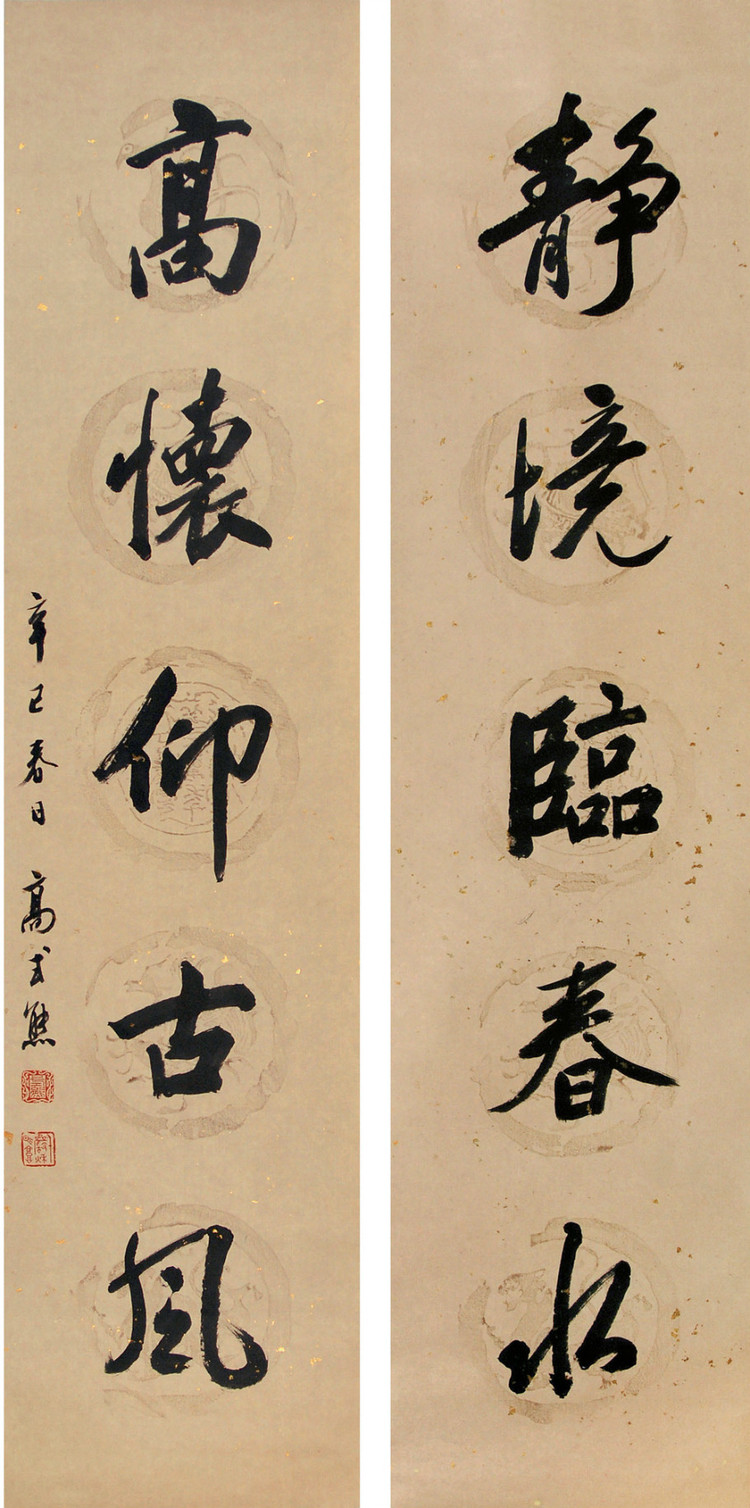 靜境臨春水
高懷仰古風
辛巳春日 高式熊